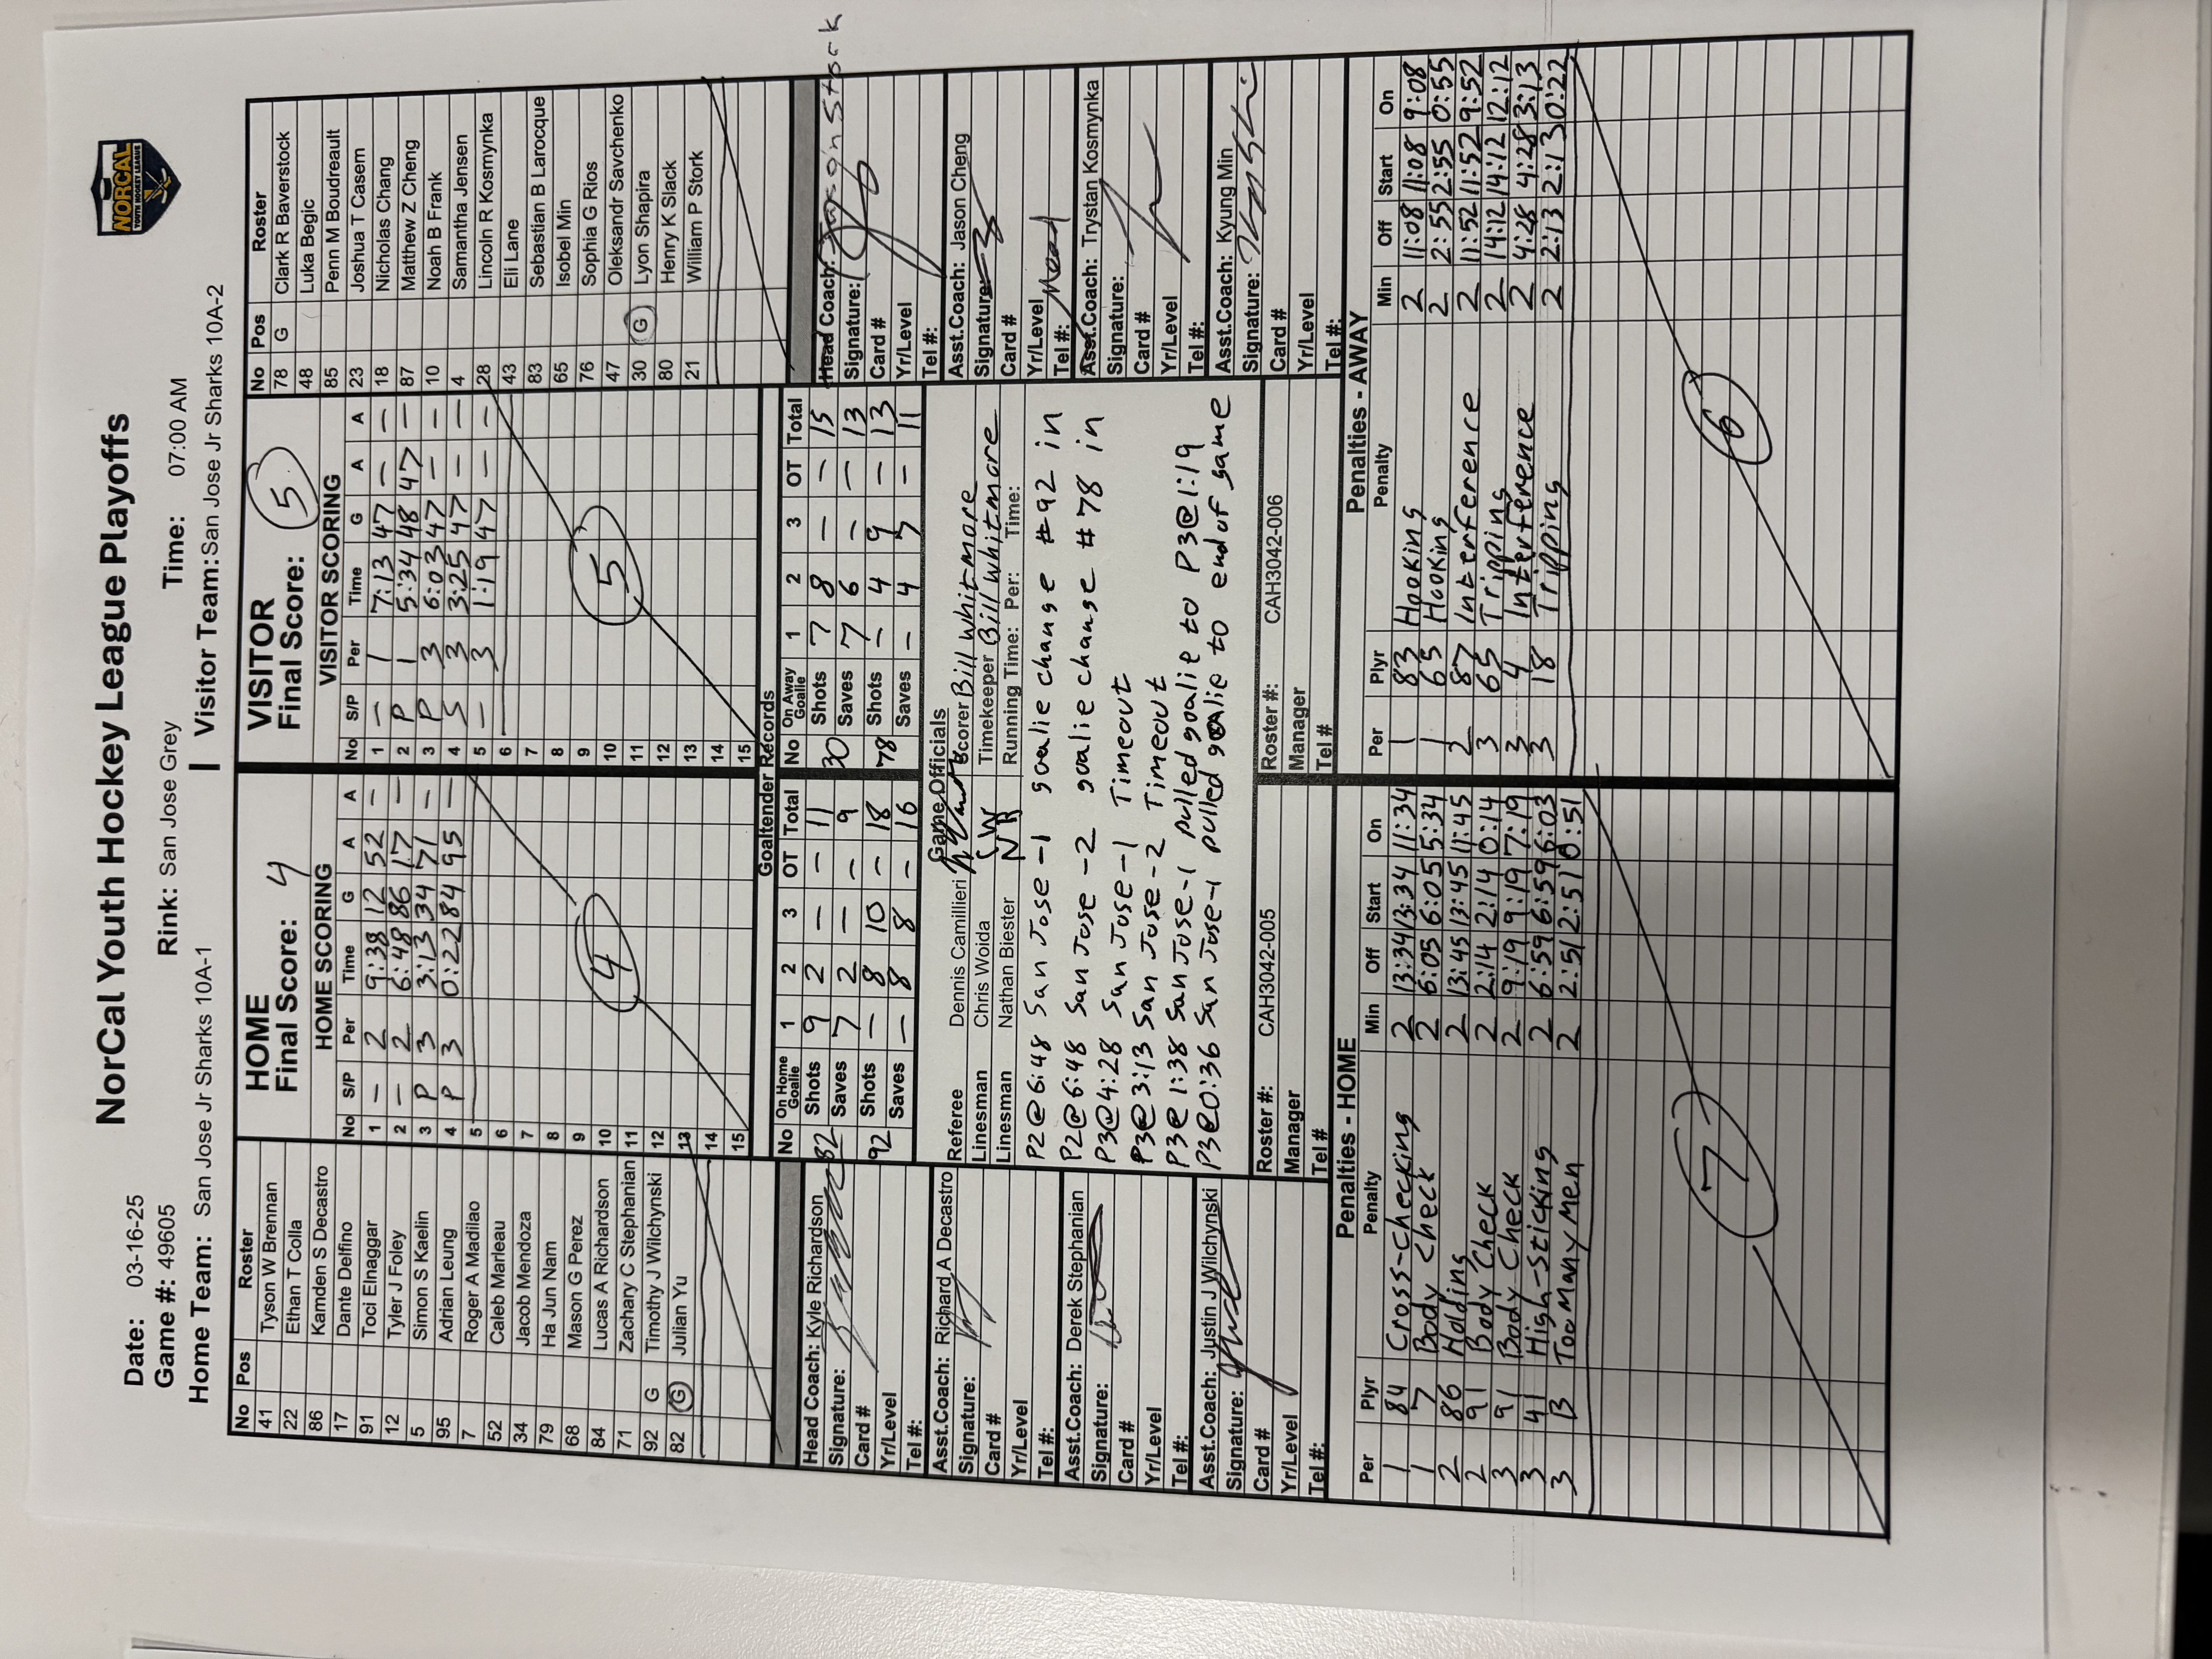 NorCal Youth Hockey League Playoffs
NORCAL
YOUTH HOCKEY LEAGUE
Date: 03-16-25
Game #: 49605
Rink: San Jose Grey
Time: 07:00 AM
Home Team: San Jose Jr Sharks 10A-1
Visitor Team: San Jose Jr Sharks 10A-2
No Pos Roster
41 Tyson W Brennan
22 Ethan T Colla
86 Kamden S Decastro
17 Dante Delfino
91 Toci Elnaggar
12 Tyler J Foley
5 Simon S Kaelin
95 Adrian Leung
7 Roger A Madilao
52 Caleb Marleau
34 Jacob Mendoza
79 Ha Jun Nam
68 Mason G Perez
84 Lucas A Richardson
71 Zachary C Stephanian
92 G Timothy J Wilchynski
82 G Julian Yu
HOME
Final Score: 4
HOME SCORING
No S/P Per Time G A A
1 – 2 9:38 12 52 –
2 – 2 6:48 86 17 –
3 P 3 3:13 34 71 –
4 P 3 0:22 84 95 –
5
6
7
8
9
10
11
12
13
14
15
4
VISITOR
Final Score: 5
VISITOR SCORING
No S/P Per Time G A A
1 – 1 7:13 47 – –
2 P 1 5:34 48 47 –
3 P 3 6:03 47 – –
4 S 3 3:25 47 – –
5 – 3 1:19 47 – –
6
7
8
9
10
11
12
13
14
15
5
No Pos Roster
78 G Clark R Baverstock
48 Luka Begic
85 Penn M Boudreault
23 Joshua T Casem
18 Nicholas Chang
87 Matthew Z Cheng
10 Noah B Frank
4 Samantha Jensen
28 Lincoln R Kosmynka
43 Eli Lane
83 Sebastian B Larocque
65 Isobel Min
76 Sophia G Rios
47 Oleksandr Savchenko
30 G Lyon Shapira
80 Henry K Slack
21 William P Stork
Head Coach: Kyle Richardson
Signature:
Card #
Yr/Level
Tel #:
Asst.Coach: Richard A Decastro
Signature:
Card #
Yr/Level
Tel #:
Asst.Coach: Derek Stephanian
Signature:
Card #
Yr/Level
Tel #:
Asst.Coach: Justin J Wilchynski
Signature:
Card #
Yr/Level
Tel #:
Goaltender Records
No On Home Goalie 1 2 3 OT Total
82 Shots 9 2 – – 11
Saves 7 2 – – 9
92 Shots – 8 10 – 18
Saves – 8 8 – 16
No On Away Goalie 1 2 3 OT Total
30 Shots 7 8 – – 15
Saves 7 6 – – 13
78 Shots – 4 9 – 13
Saves – 4 7 – 11
Game Officials
Referee Dennis Camillieri
Linesman Chris Woida CW
Linesman Nathan Biester NB
Scorer Bill Whitmore
Timekeeper Bill Whitmore
Running Time: Per: Time:
P2@6:48 San Jose -1 goalie change #92 in
P2@6:48 San Jose -2 goalie change #78 in
P3@4:28 San Jose -1 Timeout
P3@3:13 San Jose -2 Timeout
P3@1:38 San Jose-1 pulled goalie to P3@1:19
P3@0:36 San Jose-1 pulled goalie to end of game
Roster #: CAH3042-005
Manager
Tel #
Roster #: CAH3042-006
Manager
Tel #
Head Coach: Jason Stock
Signature:
Card #
Yr/Level
Tel #:
Asst.Coach: Jason Cheng
Signature:
Card #
Yr/Level
Tel #:
Asst.Coach: Trystan Kosmynka
Signature:
Card #
Yr/Level
Tel #:
Asst.Coach: Kyung Min
Signature:
Card #
Yr/Level
Tel #:
Penalties - HOME
Per Plyr Penalty Min Off Start On
1 84 Cross-Checking 2 13:34 13:34 11:34
1 7 Body Check 2 6:05 6:05 5:34
2 86 Holding 2 13:45 13:45 11:45
2 91 Body Check 2 2:14 2:14 0:14
3 91 Body Check 2 9:19 9:19 7:19
3 41 High-Sticking 2 6:59 6:59 6:03
3 B Too Many Men 2 2:51 2:51 0:51
7
Penalties - AWAY
Per Plyr Penalty Min Off Start On
1 83 Hooking 2 11:08 11:08 9:08
1 65 Hooking 2 2:55 2:55 0:55
2 87 Interference 2 11:52 11:52 9:52
3 65 Tripping 2 14:12 14:12 12:12
3 4 Interference 2 4:28 4:28 3:13
3 18 Tripping 2 2:13 2:13 0:22
6